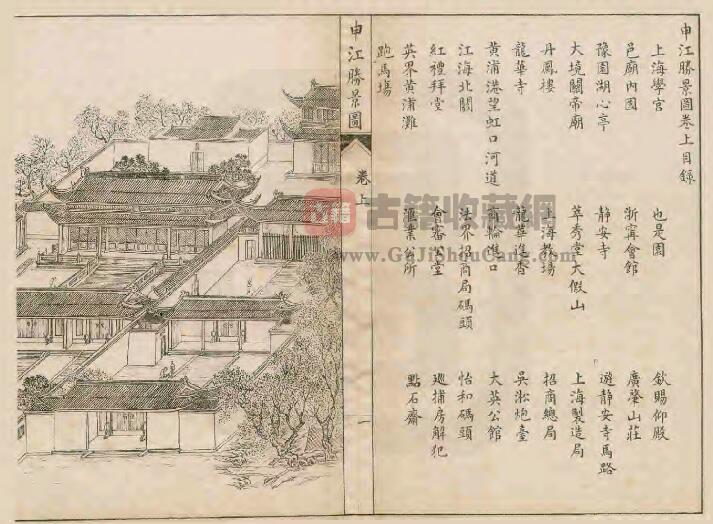 申江勝景圖卷上目錄
上海學宮 也是園 欽賜仰殿
邑廟內園 浙寧會館 廣肇山莊
豫園湖心亭 靜安寺 遊靜安寺馬路
大境關帝廟 萃秀堂大假山 上海製造局
丹鳳樓 上海教場 招商總局
龍華寺 龍華進香 吳淞炮臺
黃浦港望虹口河道 輪進口 大英公館
江海北關 法界招商局碼頭 怡和碼頭
紅禮拜堂 會審公堂 巡捕房解犯
英界黃浦灘 滙業公所 點石齋
跑馬場
申江勝景圖 卷上 一
古籍
古籍收藏網
www.GuJiShouCang.com